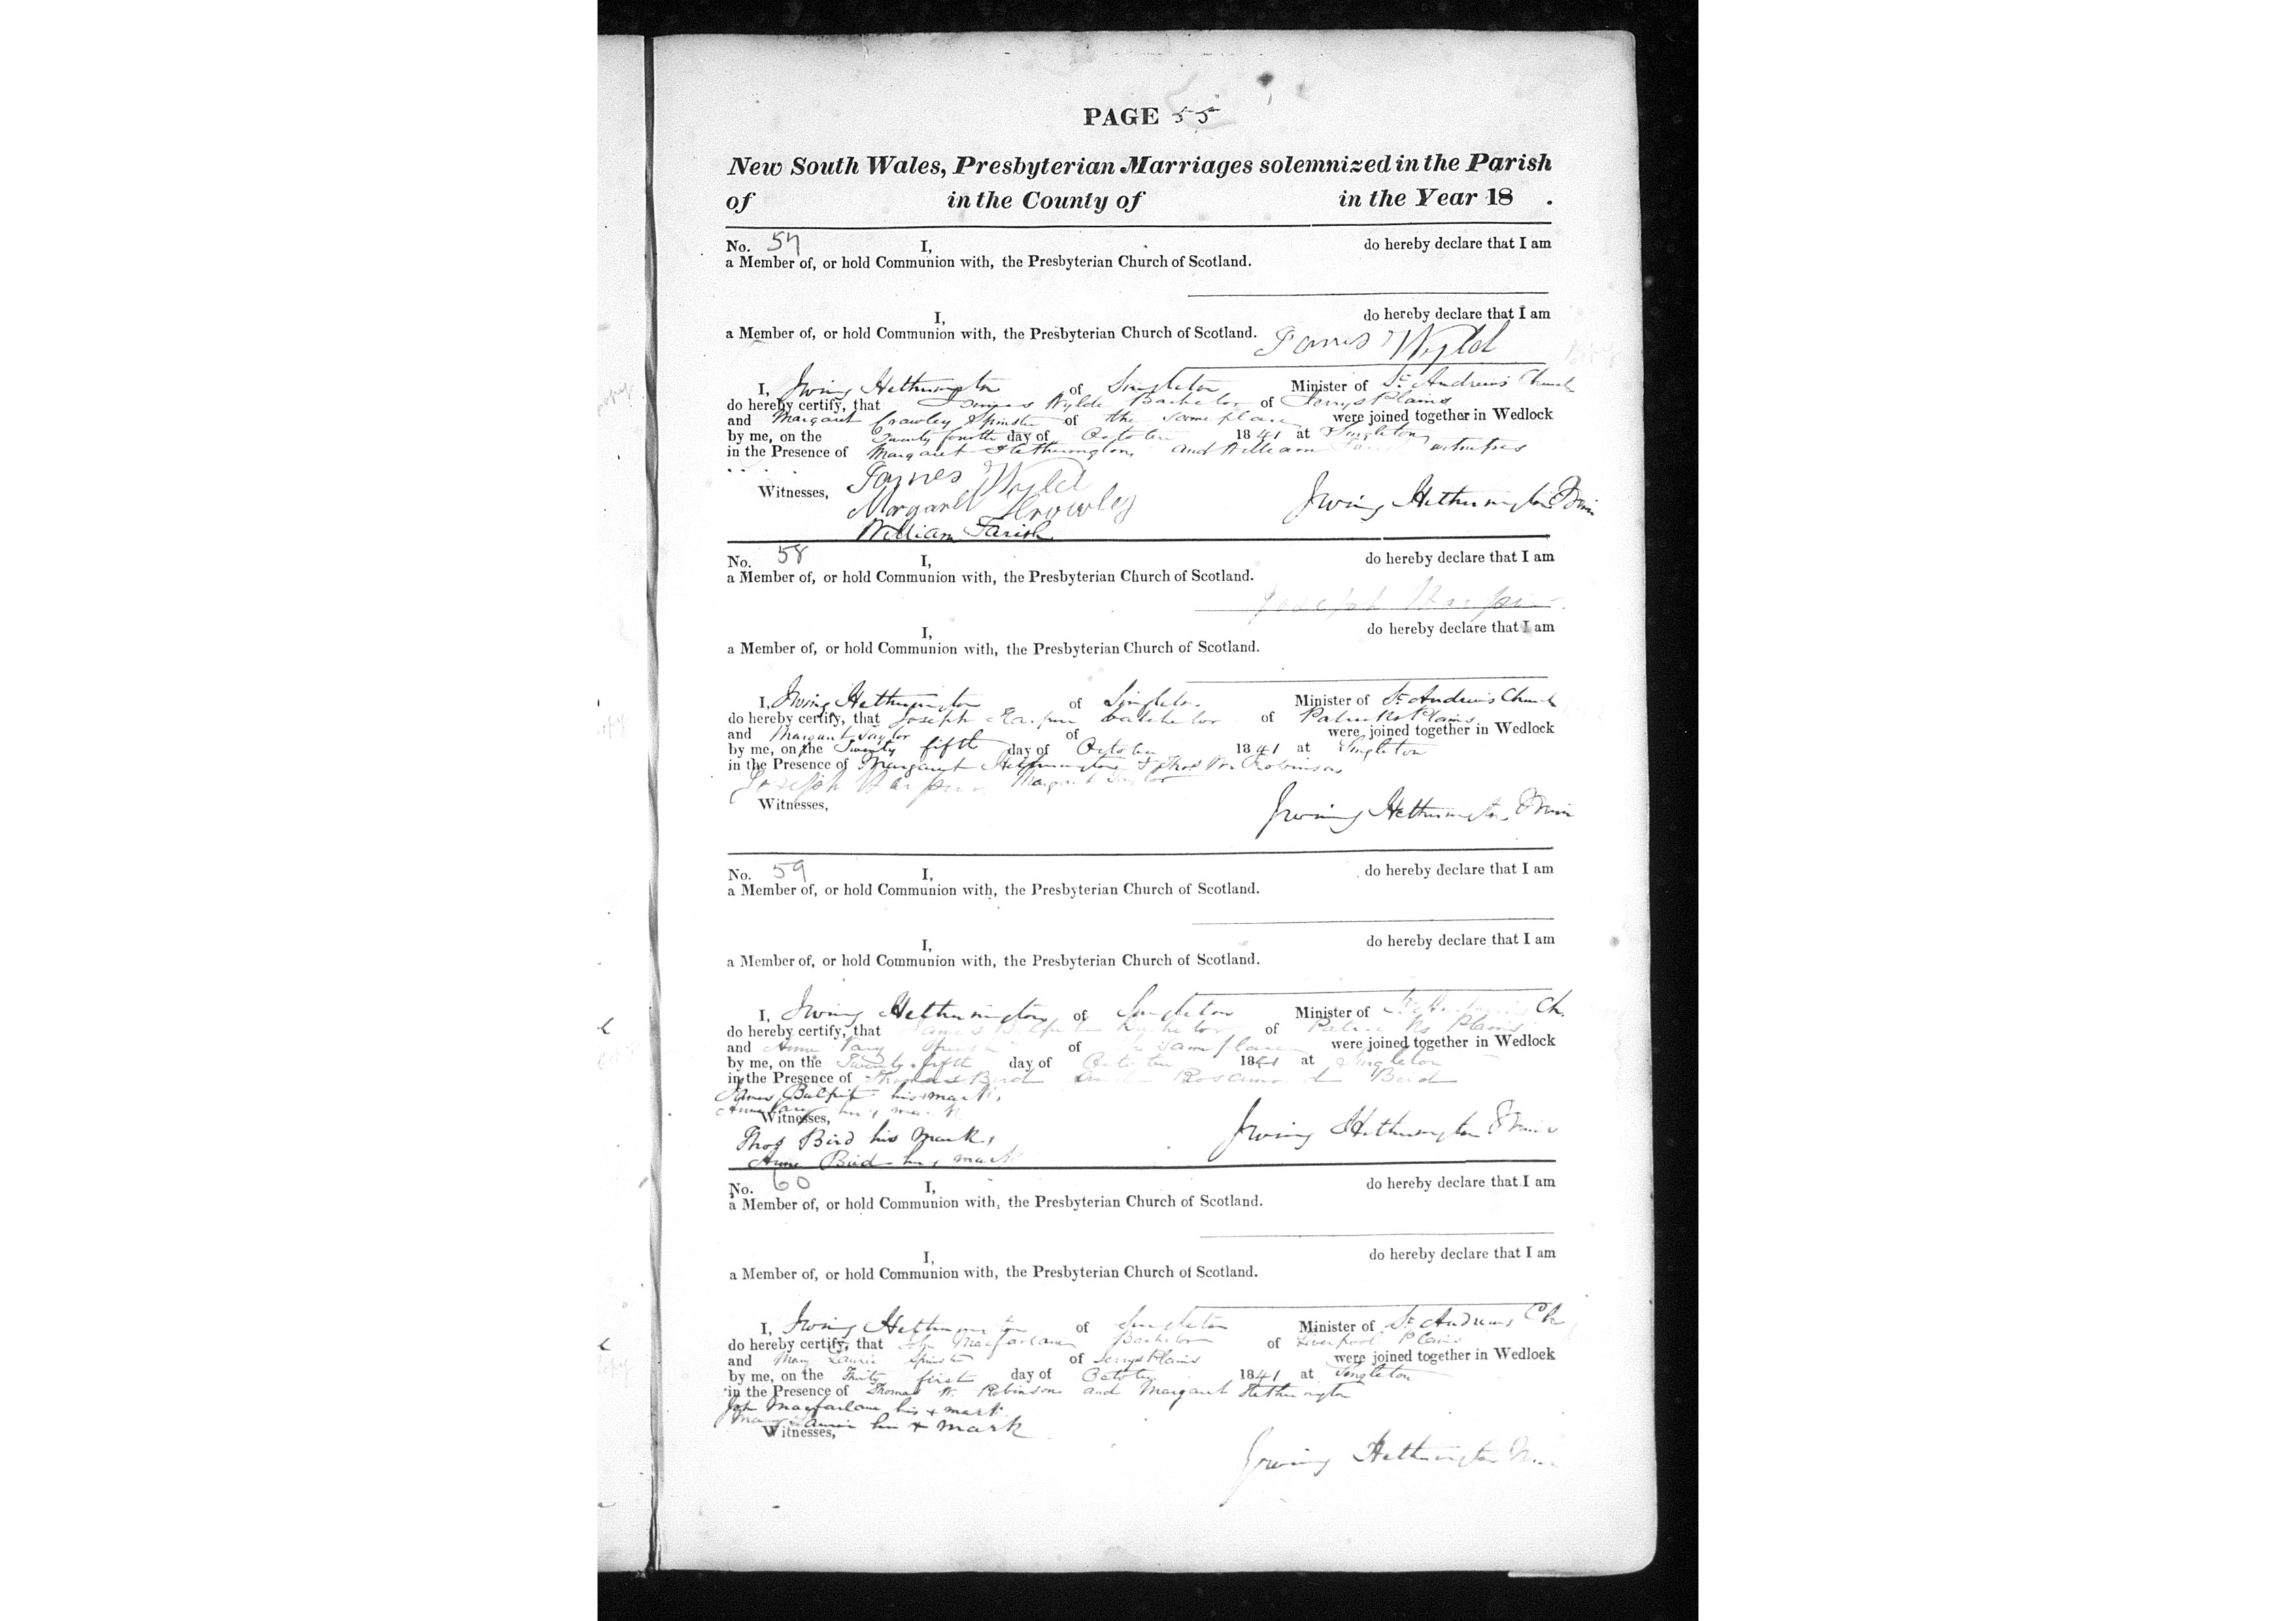 PAGE 55
New South Wales, Presbyterian Marriages solemnized in the Parish
of in the County of in the Year 18 .
No. 57 I, do hereby declare that I am
a Member of, or hold Communion with, the Presbyterian Church of Scotland.
I, do hereby declare that I am
a Member of, or hold Communion with, the Presbyterian Church of Scotland.
James Wyld
I, Irving Hetherington of Singleton Minister of St Andrews Church
do hereby certify, that James Wylde Bachelor of Jerrys Plains
and Margaret Crawley Spinster of the same place were joined together in Wedlock
by me, on the Twenty fourth day of October 1841 at Singleton
in the Presence of Margaret Hetherington and William witnesses
James Wyld
Witnesses,
Margaret Crowley
Irving Hetherington Min
William Farish
No. 58 I, do hereby declare that I am
a Member of, or hold Communion with, the Presbyterian Church of Scotland.
Joseph Harpur
I, do hereby declare that I am
a Member of, or hold Communion with, the Presbyterian Church of Scotland.
I, Irving Hetherington of Singleton Minister of St Andrews Church
do hereby certify, that Joseph Harpur batchelor of Patricks Plains
and Margaret Taylor of were joined together in Wedlock
by me, on the Twenty fifth day of October 1841 at Singleton
in the Presence of Margaret Hetherington & Thos Wm Robinson
Joseph Harpur Margaret Taylor
Witnesses,
Irving Hetherington Min
No. 59 I, do hereby declare that I am
a Member of, or hold Communion with, the Presbyterian Church of Scotland.
I, do hereby declare that I am
a Member of, or hold Communion with, the Presbyterian Church of Scotland.
I, Irving Hetherington of Singleton Minister of St Andrews Ch.
do hereby certify, that James Bulpit Bachelor of Patricks Plains
and Anne Spinster of the same place were joined together in Wedlock
by me, on the Twenty fifth day of October 1841 at Singleton
in the Presence of Thomas Bird and Rosamond Bird
James Bulpit his mark,
Anne her mark
Witnesses,
Thos Bird his mark,
Irving Hetherington Min
Anne Bird her mark
No. 60 I, do hereby declare that I am
a Member of, or hold Communion with, the Presbyterian Church of Scotland.
I, do hereby declare that I am
a Member of, or hold Communion with, the Presbyterian Church of Scotland.
I, Irving Hetherington of Singleton Minister of St Andrews Ch
do hereby certify, that John Macfarlane Bachelor of Liverpool Plains
and Mary Laurie Spinster of Jerrys Plains were joined together in Wedlock
by me, on the Thirty first day of October 1841 at Singleton
in the Presence of Thomas W. Robinson and Margaret Hetherington
John Macfarlane his + mark
Mary Laurie her + mark
Witnesses,
Irving Hetherington Min